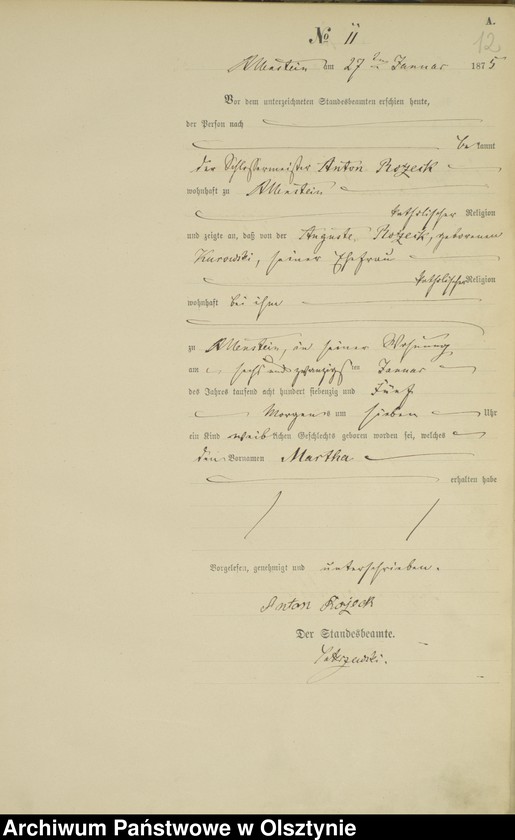 A.
12
No 11
Allenstein am 27ten Januar 1875
Vor dem unterzeichneten Standesbeamten erschien heute,
der Person nach
bekannt
der Schlossermeister Anton
wohnhaft zu Allenstein
katholischer Religion
und zeigte an, daß von der Auguste geborenen
Kurowski, seiner Ehefrau
katholischer Religion
wohnhaft bei ihm
zu Allenstein, in seiner Wohnung
am sechs und zwanzigsten Januar
des Jahres tausend acht hundert siebenzig und Fünf
Morgens um sieben Uhr
ein Kind weiblichen Geschlechts geboren worden sei, welches
den Vornamen Martha
erhalten habe
Vorgelesen, genehmigt und unterschrieben.
Anton
Der Standesbeamte.
Archiwum Państwowe w Olsztynie